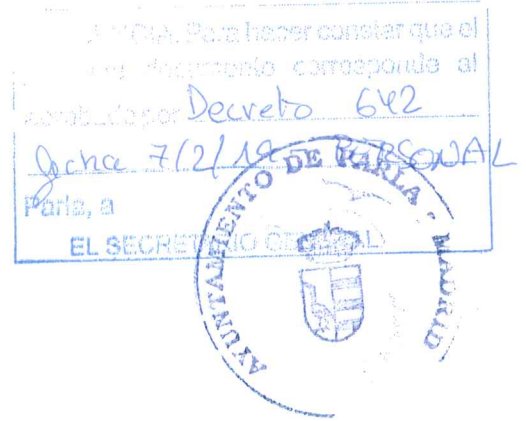 Para hacer constar que el
documento corresponde al
por Decreto 642
fecha 7/2/19 PERSONAL
Parla, a
EL SECRETARIO GENERAL
AYUNTAMIENTO DE PARLA - MADRID